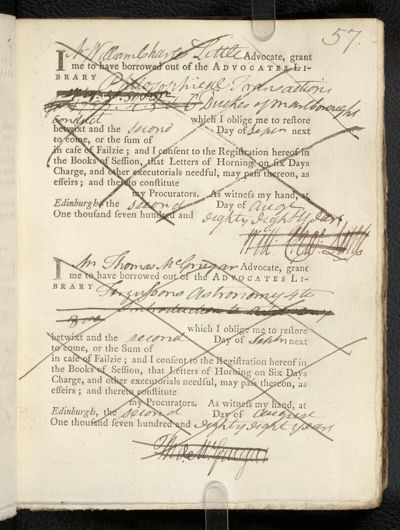 57.
I Mr William Charles Little Advocate, grant
me to have borrowed out of the ADVOCATES LI-
BRARY Philosophical Transactions
Dukes of marlboroughs
conduct which I oblige me to restore
betwixt and the second Day of Sepr next
to come, or the sum of
in case of Failzie; and I consent to the Registration hereof in
the Books of Session, that Letters of Horning on six Days
Charge, and other executorials needful, may pass thereon, as
effeirs; and thereto constitute
my Procurators. As witness my hand, at
Edinburgh, the second Day of Augt
One thousand seven hundred and eighty eight years
Will: Chas: Little
I Mr Thomas McGrugar Advocate, grant
me to have borrowed out of the ADVOCATES LI-
BRARY Fergussons Astronomy 4to
Introduction to
8vo which I oblige me to restore
betwixt and the second Day of Septr next
to come, or the Sum of
in case of Failzie; and I consent to the Registration hereof in
the Books of Session, that Letters of Horning on Six Days
Charge, and other executorials needful, may pass thereon, as
effeirs; and thereto constitute
my Procurators. As witness my hand, at
Edinburgh, the second Day of august
One thousand seven hundred and eighty eight years
Thos McGrugar